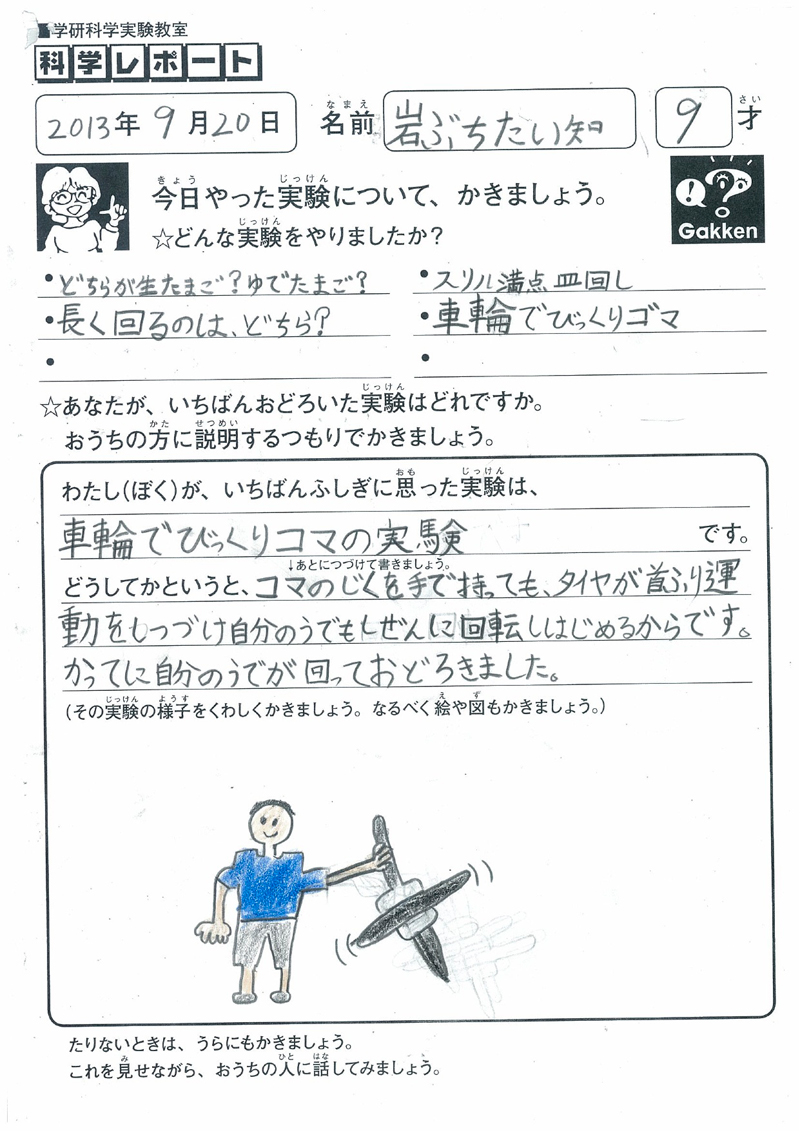 学研科学実験教室
科学レポート
2013年 9月20日 名前 岩ぶちたい知 9才
なまえ さい
きょう じっけん
今日やった実験について、かきましょう。
じっけん
☆どんな実験をやりましたか?
Gakken
•どちらが生たまご?ゆでたまご? •スリル満点皿回し
•長く回るのは、どちら? •車輪でびっくりゴマ
• •
じっけん
☆あなたが、いちばんおどろいた実験はどれですか。
かた せつめい
おうちの方に説明するつもりでかきましょう。
おも じっけん
わたし(ぼく)が、いちばんふしぎに思った実験は、
車輪でびっくりコマの実験 です。
↓あとにつづけて書きましょう。
どうしてかというと、コマのじくを手で持っても、タイヤが首ふり運
動をしつづけ自分のうでもしぜんに回転しはじめるからです。
かってに自分のうでが回っておどろきました。
じっけん ようす え ず
(その実験の様子をくわしくかきましょう。なるべく絵や図もかきましょう。)
たりないときは、うらにもかきましょう。
み ひと はな
これを見せながら、おうちの人に話してみましょう。